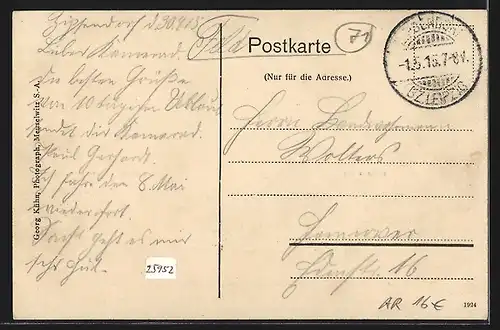 Zipsendorf d. 30.4.15
Lieber Kamerad.
Die besten Grüße
von 10 tägigen Urlaub
sendet dir Kamerad
Paul Gerhardt
Ich fahre den 8. Mai
wieder fort.
Sonst geht es mir
sehr gut.
Feld
Postkarte
71
(Nur für die Adresse.)
-1.5.15.7-8V.
Herrn
Wolters
Hannover
16
Georg Kühn, Photograph, Meuselwitz S.-A.
25952
AR 16€
1924